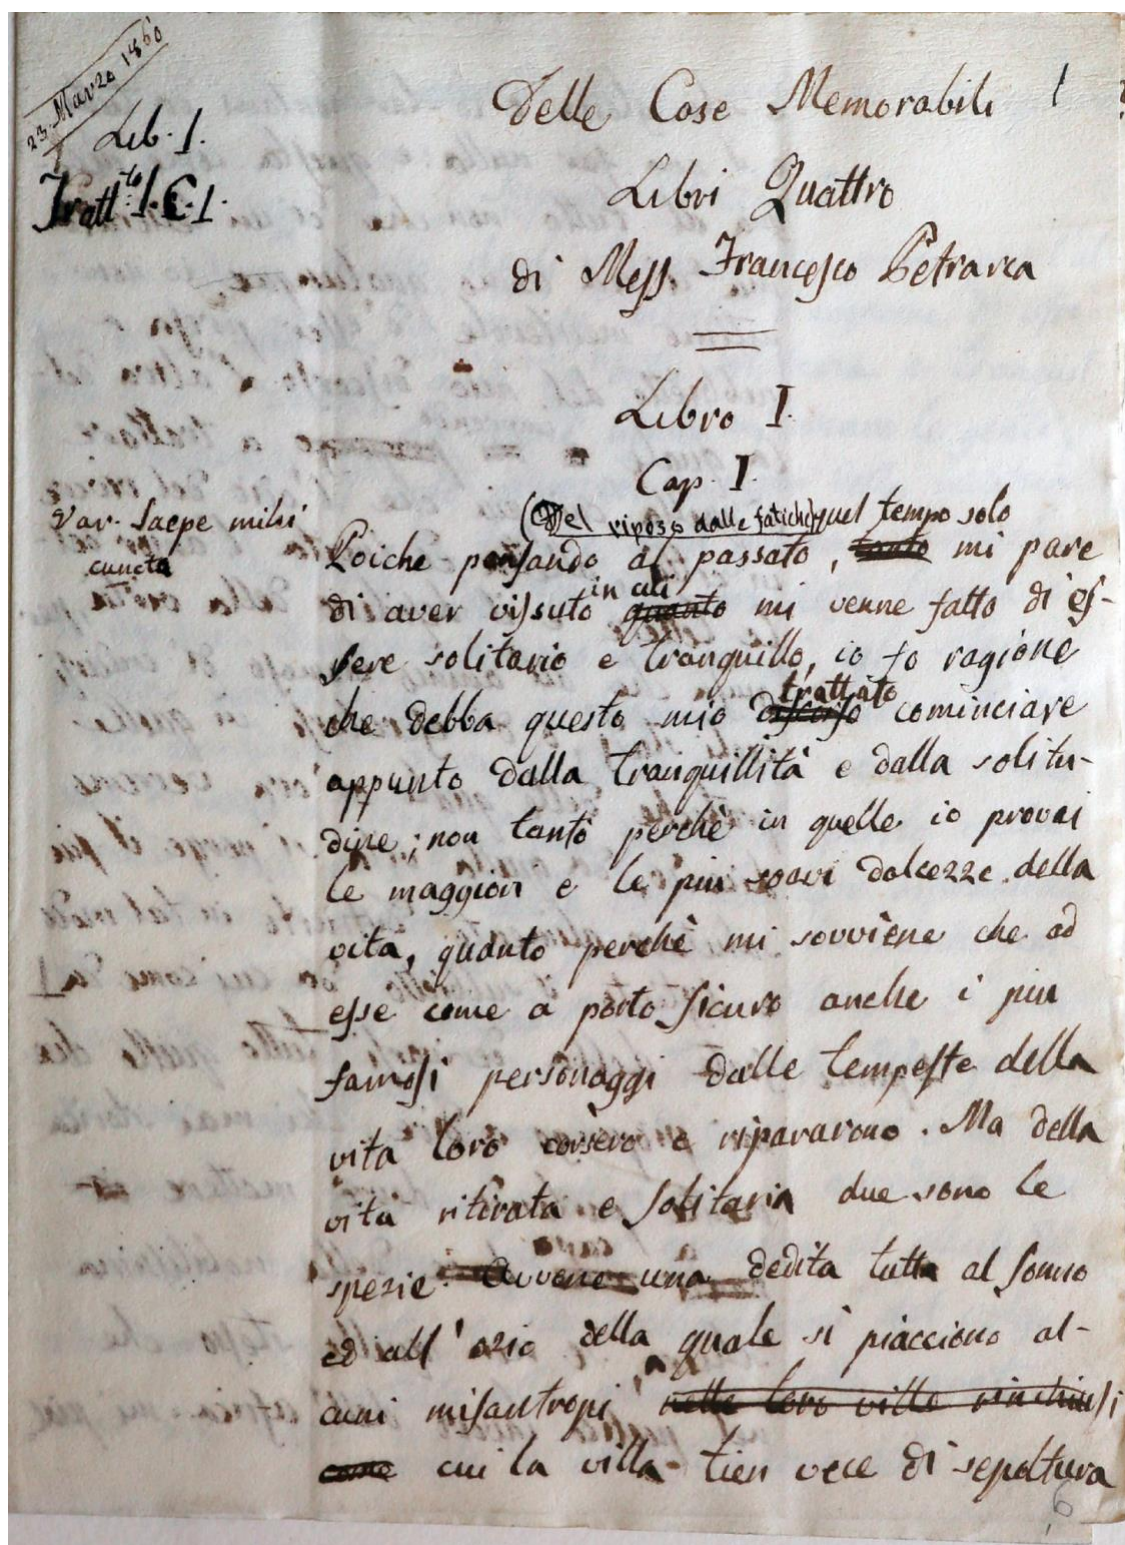 23. Marzo 1860
Lib. I.
Tratt.to I. C. I.
Delle Cose Memorabili 1
Libri Quattro
di Mess. Francesco Petrarca
Libro I.
Cap. I.
Var. Saepe mihi
cuncta
(Del riposo dalle fatiche) quel tempo solo
Poiche pensando al passato, tanto mi pare
in cui
di aver vissuto quanto mi venne fatto di es-
sere solitario e tranquillo, io fo ragione
trattato
che debba questo mio discorso cominciare
appunto dalla tranquillità e dalla solitu-
dine; non tanto perchè in quelle io provai
le maggiori e le piu soavi dolcezze della
vita, quanto perchè mi sovviene che ad
esse come a porto sicuro anche i piu
famosi personaggi dalle tempeste della
vita loro corsero e ripararono. Ma della
vita ritirata e solitaria due sono le
spezie. Avvene una dedita tutta al sonno
ed all'ozio della quale si piacciono al-
cuni misantropi, nelle loro ville rinchiusi
come a cui la villa tien vece di sepoltura